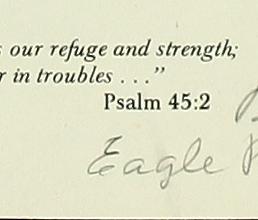 our refuge and strength;
r in troubles . . ."
Psalm 45:2
Eagle